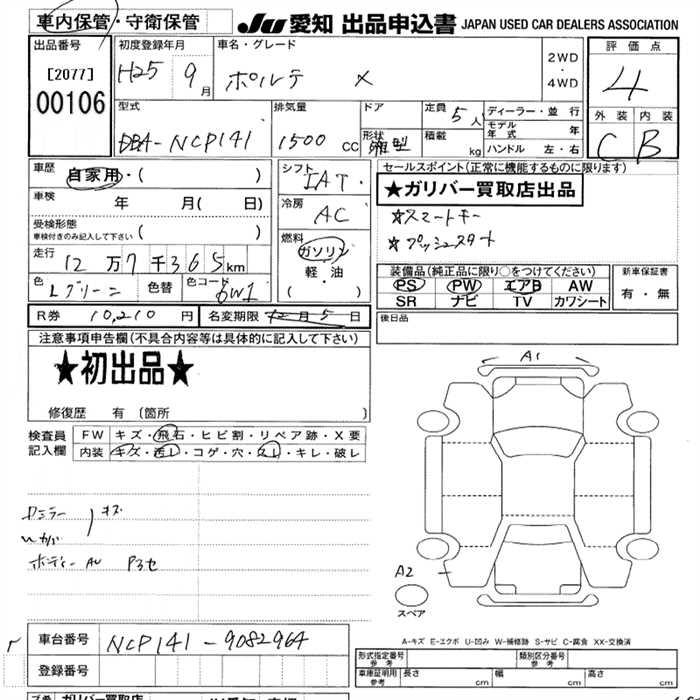 車内保管・守衛保管
JU 愛知 出品申込書 JAPAN USED CAR DEALERS ASSOCIATION
出品番号
[2077]
00106
初度登録年月
H25 9月
車名・グレード
ポルテ X
2WD
・
4WD
評価点
4
外装 内装
C B
型式
DBA-NCP141
排気量
1500 CC
ドア
形状
箱型
定員 5人
積載 kg
ディーラー・並行
モデル年式 年
ハンドル 左・右
車歴
自家用・( )
車検
年 月( 日)
受検形態
車検付きのみ記入して下さい ( )
走行
12万7千365km
色
Lグリーン
色替
色コード
6W1
シフト
IAT
冷房
AC
燃料
ガソリン
軽・油
( )
セールスポイント(正常に機能するものに限ります)
★ガリバー買取店出品
☆スマートキー
☆プッシュスタート
装備品(純正品に限り○をつけてください)
PS PW エアB AW
SR ナビ TV カワシート
新車保証書
有・無
R券 10,210円
名変期限 12月5日
後日品
注意事項申告欄(不具合内容等は具体的に記入して下さい)
★初出品★
修復歴 有 (箇所 )
検査員
記入欄
FW キズ・飛石・ヒビ割・リペア跡・X要
内装 キズ・汚レ・コゲ・穴・スレ・キレ・破レ
キズ
ボディー AU P3セ
A1
A2
スペア
A-キズ E-エクボ U-凹み W-補修跡 S-サビ C-腐食 XX-交換済
車台番号
NCP141-9082964
登録番号
形式指定番号
参考
類別区分番号
参考
車庫証明用
参考
長さ cm 幅 cm 高さ cm
ガリバー買取店